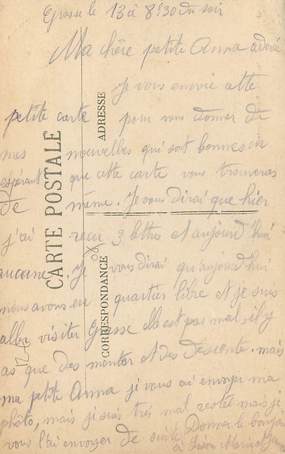 Grasse le 13 à 8h30 du soir
Ma chère petite Anna adorée
Je vous envoie cette
petite carte pour vous donner de
mes nouvelles qui sont bonnes en
espérant que cette carte vous trouveras
de même. Je vous dirai que hier
j'ai recu 3 lettre et aujourd'hui
aucune. Je vous dirai qu'aujourd'hui
nous avons eu quartier libre et je suis
aller visiter Grasse elle est pas mal il y
as que des monter et des descente. mais
ma petite Anna je vous ai envoyer ma
photo, mais je suis très mal
vous l'ai envoyer de suite Donner le bonjour
à Léon
CARTE POSTALE
CORRESPONDANCE
ADRESSE